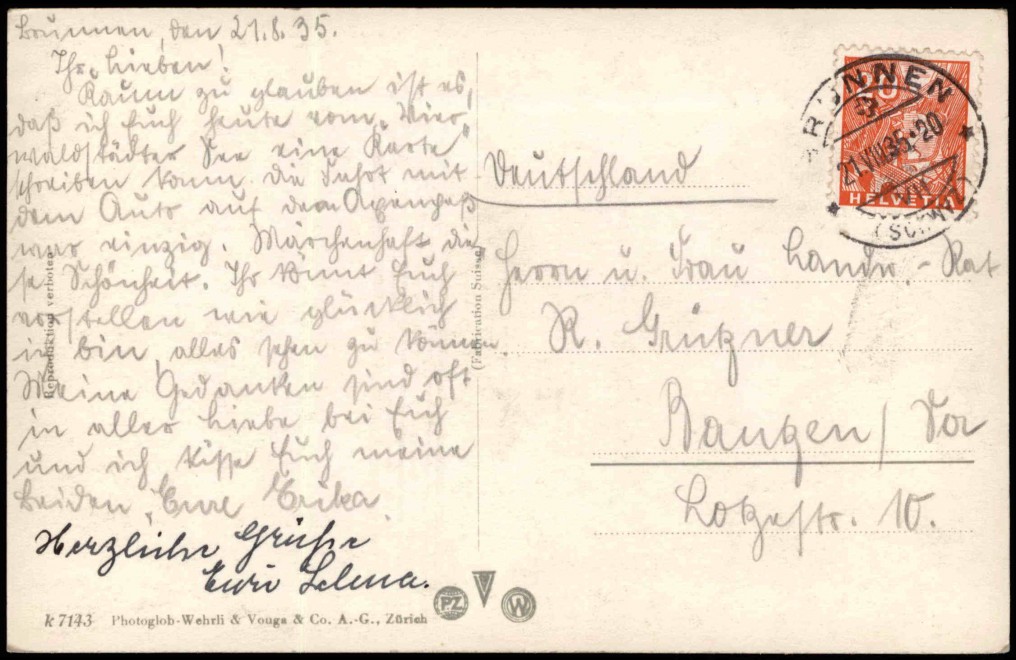 Brunnen, den 21.8.35.
Ihr Lieben!
Kaum zu glauben ist es,
daß ich Euch heute vom „Vier-
waldstädter See eine Karte"
schreiben kann. Die Fahrt mit
dem Auto auf dem Axenpaß
war einzig. Märchenhaft die
se Schönheit. Ihr könnt Euch
vorstellen wie glücklich
ich bin, alles sehen zu können.
Meine Gedanken sind oft
in aller Liebe bei Euch
und ich küsse Euch meine
beiden, Eure Erika.
Herzliche Grüße
Eure Selma.
k 7143 Photoglob-Wehrli & Vouga & Co. A.-G., Zürich
PZ W
Reproduktion verboten
(Fabrication Suisse)
BRUNNEN
21.VIII.35-20
(SCHWYZ)
20
HELVETIA
Deutschland
Herrn u. Frau Landw.-Rat
R. Grützner
Bautzen / Sa
Lotzestr. 10.